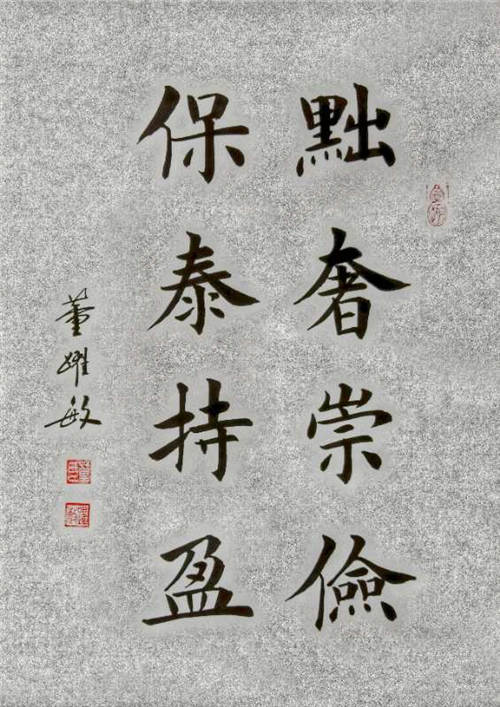 黜奢崇儉
保泰持盈
董躍敏